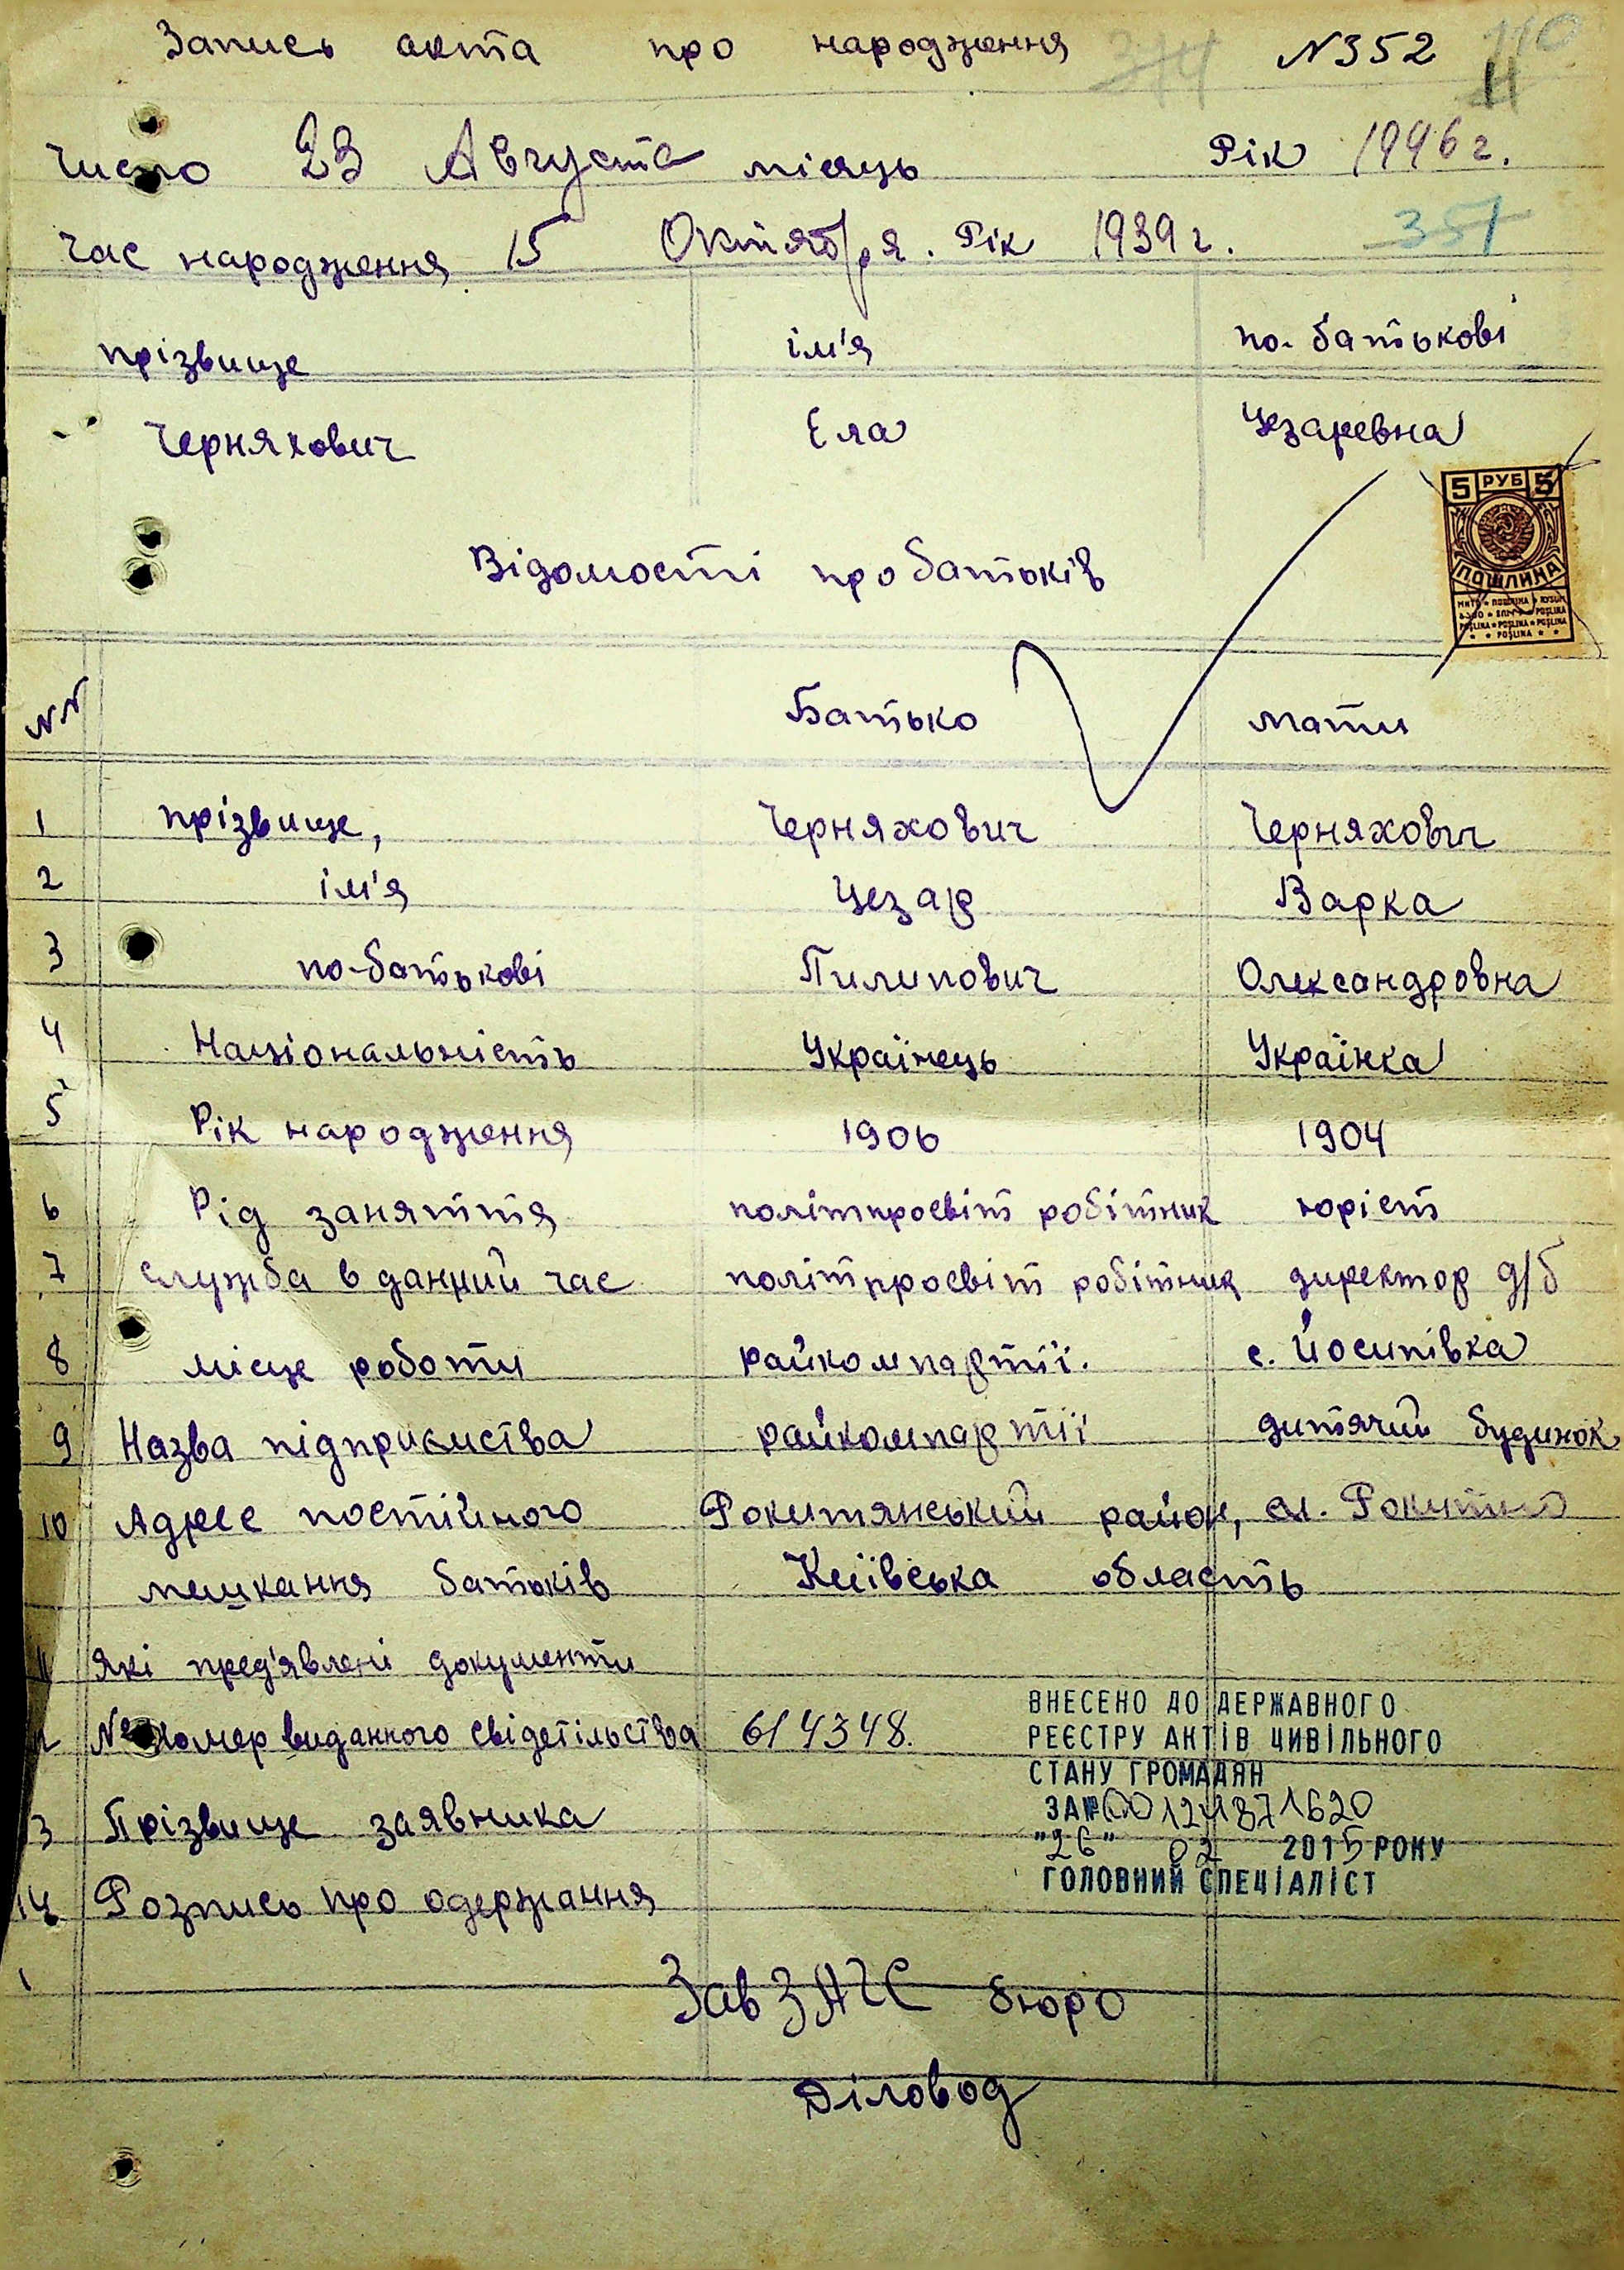 Запись акта про народження N 352
Число 23 Августа місяць Рік 1946 г.
Час народження 15 Октября. Рік 1939 г. 351
прізвище ім'я по-батькові
Черняхович Ела Цезаревна
5 РУБ 5
ПОШЛИНА
Відомості про батьків
NN Батько мати
1 прізвище, Черняхович Черняхович
2 ім'я Цезар Варка
3 по-батькові Пилипович Олександровна
4 Національність Українець Українка
5 Рік народження 1906 1904
6 Рід заняття політпросвіт робітник юріст
7 служба в данний час політпросвіт робітник директор д/б
8 місце роботи райкомпартії. с. Йосипівка
9 Назва підприємства райкомпартії дитячий будинок
10 Адрес постійного Рокитянський район, Рокитно
мешкання батьків Київська область
11 які пред'явлені документи
№ номер виданного свідетільства 614348.
13 Прізвище заявника
14 Розпись про одержання
ВНЕСЕНО ДО ДЕРЖАВНОГО
РЕЄСТРУ АКТІВ ЦИВІЛЬНОГО
СТАНУ ГРОМАДЯН
ЗА№ 00124871620
"26" 02 2015 РОКУ
ГОЛОВНИЙ СПЕЦІАЛІСТ
Зав ЗАГС бюро
Діловод